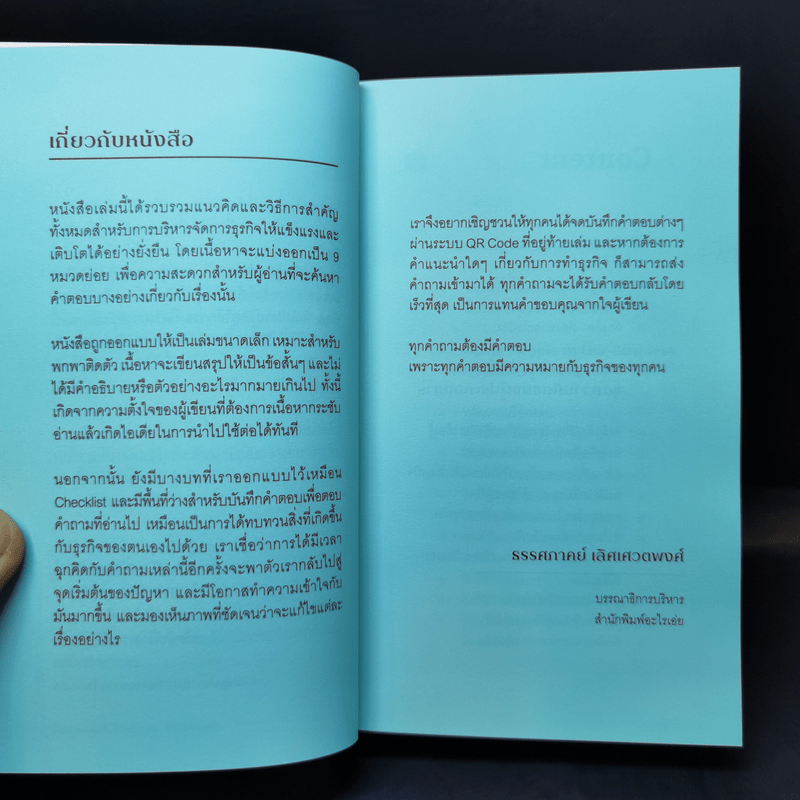 เกี่ยวกับหนังสือ
หนังสือเล่มนี้ได้รวบรวมแนวคิดและวิธีการสำคัญ
ทั้งหมดสำหรับการบริหารจัดการธุรกิจให้แข็งแรงและ
เติบโตได้อย่างยั่งยืน โดยเนื้อหาจะแบ่งออกเป็น 9
หมวดย่อย เพื่อความสะดวกสำหรับผู้อ่านที่จะค้นหา
คำตอบบางอย่างเกี่ยวกับเรื่องนั้น
หนังสือถูกออกแบบให้เป็นเล่มขนาดเล็ก เหมาะสำหรับ
พกพาติดตัว เนื้อหาจะเขียนสรุปให้เป็นข้อสั้นๆ และไม่
ได้มีคำอธิบายหรือตัวอย่างอะไรมากมายเกินไป ทั้งนี้
เกิดจากความตั้งใจของผู้เขียนที่ต้องการเนื้อหากระชับ
อ่านแล้วเกิดไอเดียในการนำไปใช้ต่อได้ทันที
นอกจากนั้น ยังมีบางบทที่เราออกแบบไว้เหมือน
Checklist และมีพื้นที่ว่างสำหรับบันทึกคำตอบเพื่อตอบ
คำถามที่อ่านไป เหมือนเป็นการได้ทบทวนสิ่งที่เกิดขึ้น
กับธุรกิจของตนเองไปด้วย เราเชื่อว่าการได้มีเวลา
ฉุกคิดกับคำถามเหล่านี้อีกครั้งจะพาตัวเรากลับไปสู่
จุดเริ่มต้นของปัญหา และมีโอกาสทำความเข้าใจกับ
มันมากขึ้น และมองเห็นภาพที่ชัดเจนว่าจะแก้ไขแต่ละ
เรื่องอย่างไร
เราจึงอยากเชิญชวนให้ทุกคนได้จดบันทึกคำตอบต่างๆ
ผ่านระบบ QR Code ที่อยู่ท้ายเล่ม และหากต้องการ
คำแนะนำใดๆ เกี่ยวกับการทำธุรกิจ ก็สามารถส่ง
คำถามเข้ามาได้ ทุกคำถามจะได้รับคำตอบกลับโดย
เร็วที่สุด เป็นการแทนคำขอบคุณจากใจผู้เขียน
ทุกคำถามต้องมีคำตอบ
เพราะทุกคำตอบมีความหมายกับธุรกิจของทุกคน
ธรรศภาคย์ เลิศเศวตพงศ์
บรรณาธิการบริหาร
สำนักพิมพ์อะไรเอ่ย